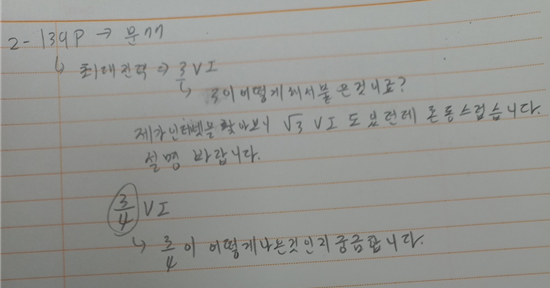 2-139P → 문77
↳ 최대전력 ⇒ 3VI
↳ 3이 어떻게해서 붙은것니료?
제가 인터넷을 찾아보니 √3 VI 도 있던데 혼동스럽습니다.
설명 바랍니다.
3/4 VI
↳ 3/4 이 어떻게나는것인지 궁금합니다.